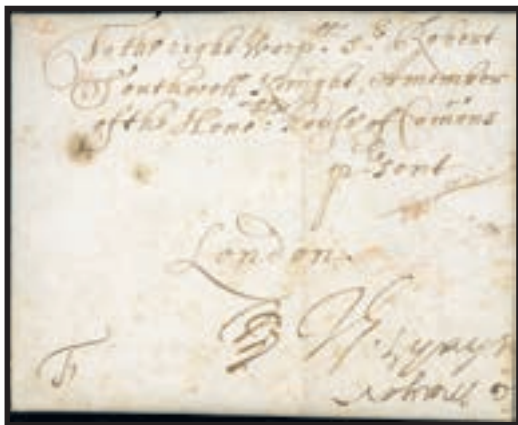 To the right Worp:ll Sr. Robert
Southwell Knight, a member
of the Hono:ble house of Comons
psent
London.